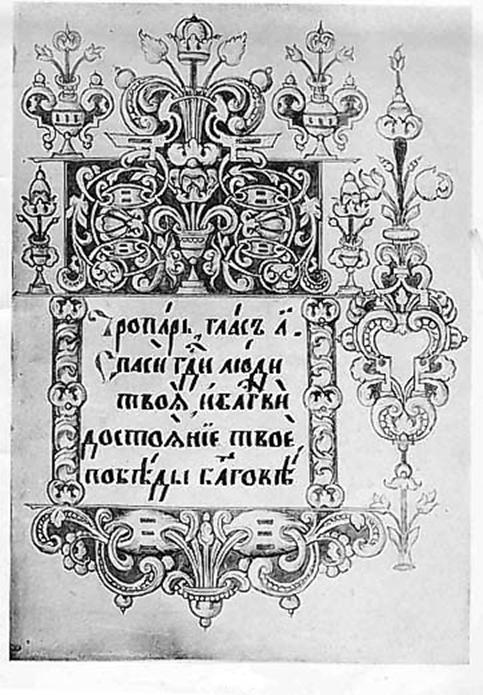 Тропа́рь, гла́съ а҃.
Спасѝ гдⷭ҇и лю́ди
твоѧ̀, и҆ бл҃гвⷭ҇и
достоѧ́нїе твоѐ,
побѣ́ды бл҃говѣ́